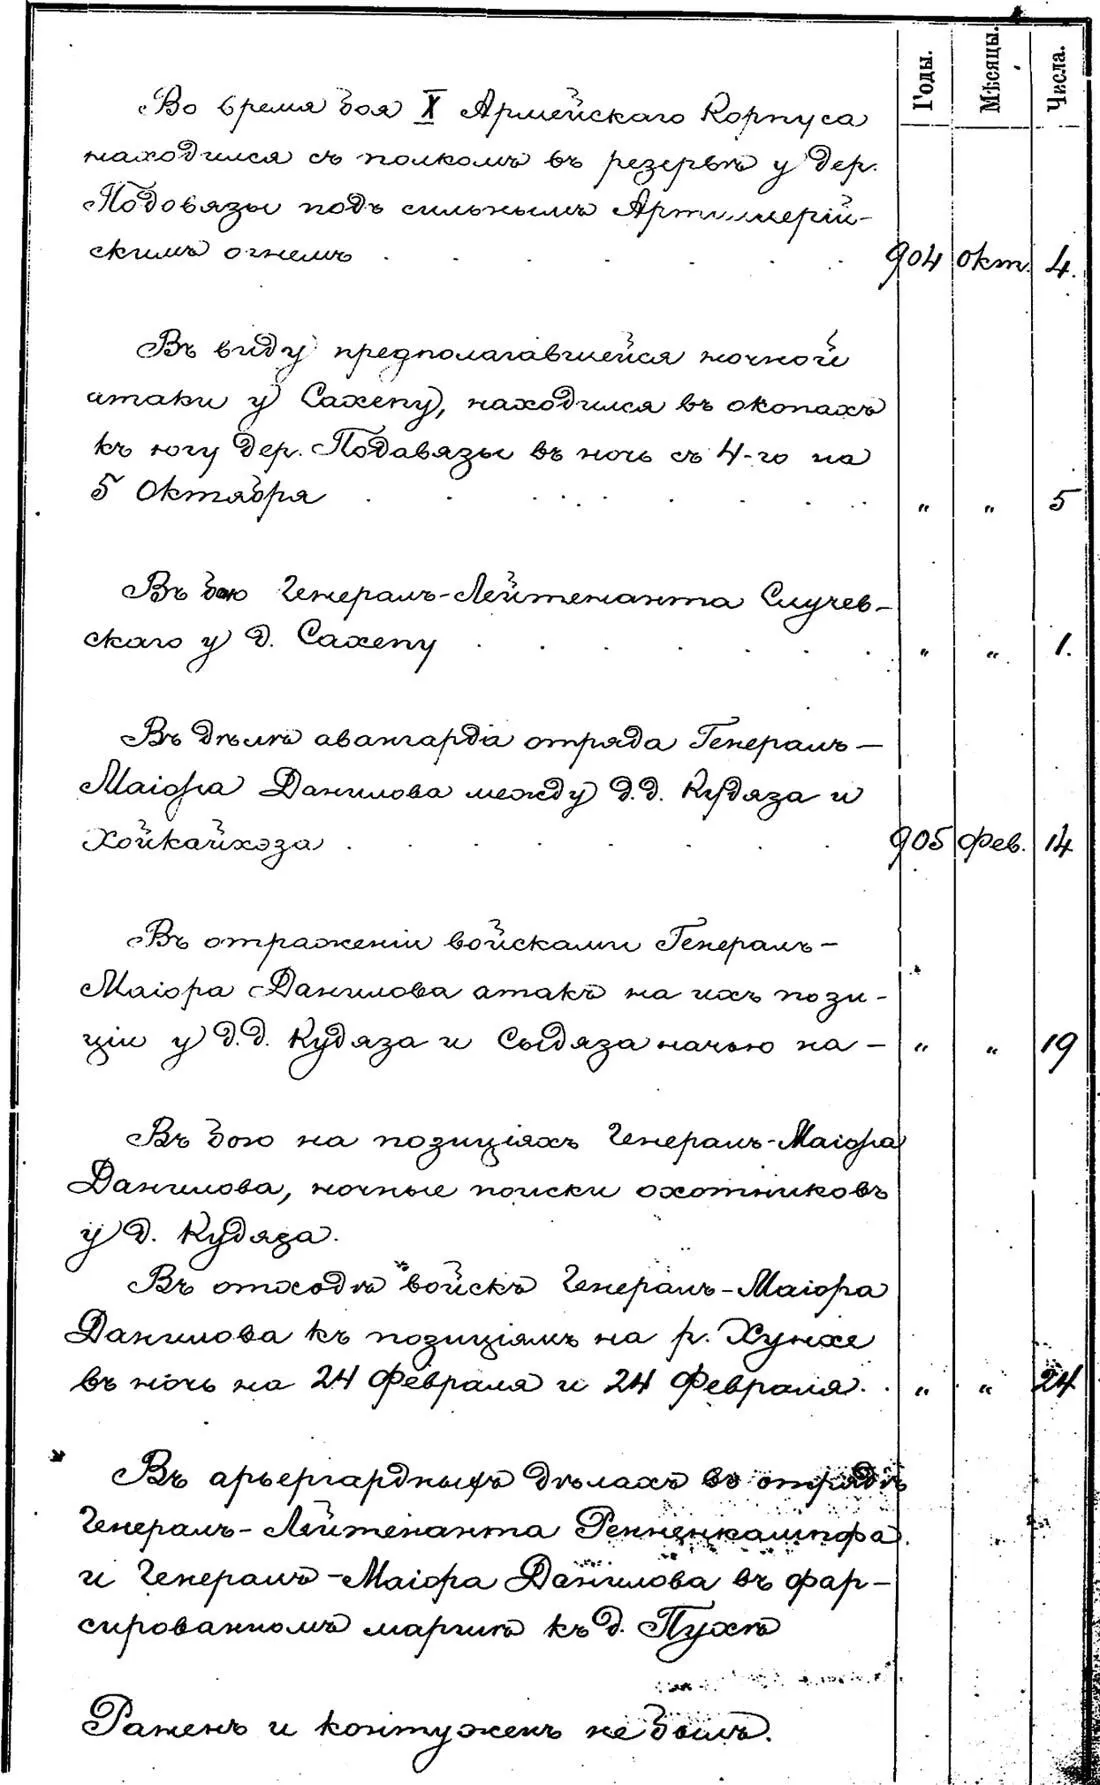 Годы. Мѣсяцы. Числа.
Во время боя X Армейскаго Корпуса
находился съ полкомъ въ резервѣ у дер.
Подовязы подъ сильнымъ Артиллерій-
скимъ огнемъ . . . . . . . 904 Окт. 4.
Въ виду предполагавшейся ночной
атаки у Сахепу, находился въ окопахъ
къ югу дер. Подавязы въ ночь съ 4-го на
5 Октября . . . . . . . . „ „ 5
Въ бою Генералъ-Лейтенанта Случев-
скаго у д. Сахепу . . . . . . . „ „ 1.
Въ дѣлѣ авангарда отряда Генералъ-
Маіора Данилова между д.д. Кудяза и
Хойкайхэза . . . . . . . . 905 Фев. 14
Въ отраженіи войсками Генералъ-
Маіора Данилова атакъ на ихъ пози-
ціи у д.д. Кудяза и Сыдяза ночью на - „ „ 19
Въ бою на позиціяхъ Генералъ-Маіора
Данилова, ночные поиски охотниковъ
у д. Кудяза.
Въ отходѣ войскъ Генералъ-Маіора
Данилова къ позиціямъ на р. Хунхе
въ ночь на 24 Февраля и 24 Февраля . . „ „ 24
Въ арьергардныхъ дѣлахъ въ отрядѣ
Генералъ-Лейтенанта Ренненкампфа
и Генералъ-Маіора Данилова въ фар-
сированномъ маршѣ къ д. Пухѣ
Раненъ и контуженъ не былъ.